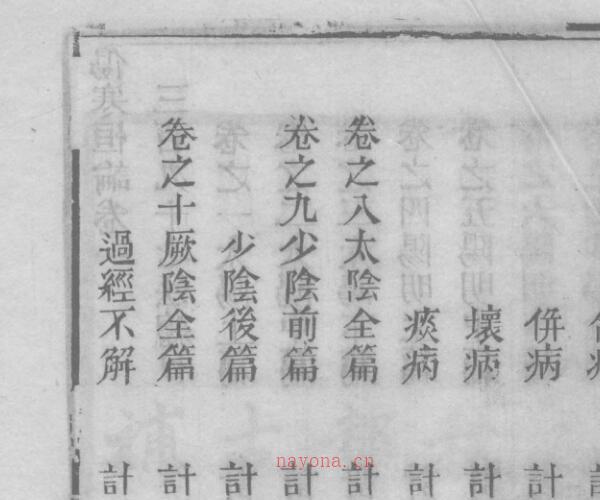 併病 計
壞病 計
痰病 計
卷之八太陰全篇 計
卷之九少陰前篇 計
少陰後篇 計
卷之十厥陰全篇 計
過經不解 計
nayona.cn